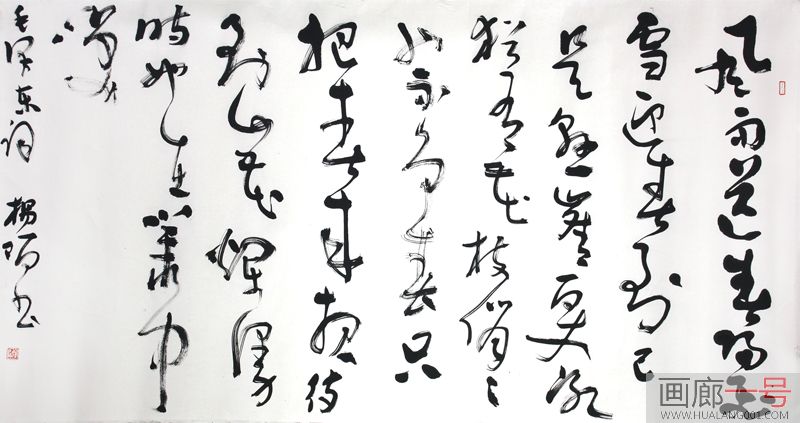 风雨送春归飞
雪迎春到已
是悬崖百丈冰
犹有花枝俏〻
也不争春只
把春来报待
到山花烂漫
时她在丛中
笑
毛泽东词 书
画廊一号
WWW.HUALANG001.COM